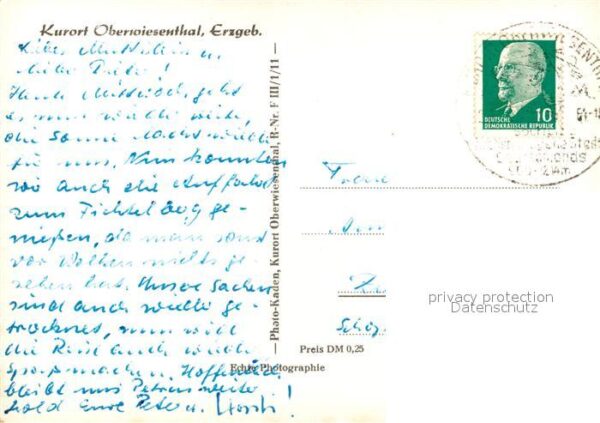 Kurort Oberwiesenthal, Erzgeb.
Liebes Muttilein u.
liebe
Heute Mittwoch geht
es nun wieder weiter,
die Sonne lacht wieder
für uns. Nun konnten
wir auch die Auffahrt
zum Fichtelberg ge-
nießen, da man sonst
vor Wolken nichts ge-
sehen hat. Unsre Sachen
sind auch wieder ge-
trocknet, nun wird
die Reise auch wieder
Spaß machen. Hoffentlich
bleibt uns Petrus weiter
hold Eure Peter u.
— Photo-Kaden, Kurort Oberwiesenthal, B-Nr. F III/1/11 —
Echte Photographie
Preis DM 0,25
DEUTSCHE
DEMOKRATISCHE REPUBLIK
10
Frau
privacy protection
Datenschutz